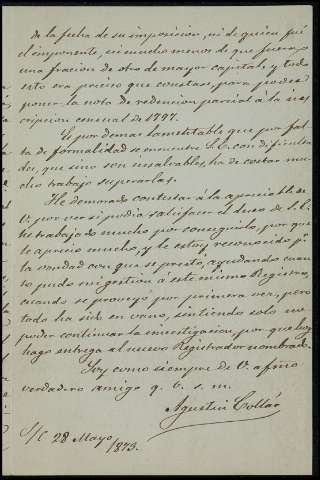 de la fecha de su imposicion, ni de quien fué
el imponente, ni mucho menos de que fuera
una fracion de otro de mayor capital, y todo
esto era preciso que constase, para poder
poner la nota de redencion parcial á la ins-
cripcion censual de 1797.
Es por demas lamentable que por fal-
ta de formalidad se encuentre S.E. con dificulta-
des, que sino son insalvables, ha de costar mu-
cho trabajo superarlas.
He demorado contestar á la aprecible de
V. por ver si podia satisfacer el deseo de S.E.
he trabajado mucho por conseguirlo, por que
le aprecio mucho, y le estoy reconocido pr
la bondad con que se prestó, ayudando cuan-
to pudo mi gestion á este mismo Registro,
cuando se proveyó por primera vez, pero
todo ha sido en vano, sintiendo solo no
poder continuar la investigacion, por que hoy
hago entrega al nuevo Registrador nombrado.
Soy como siempre de V. afmo
verdadero amigo q. b. s. m.
Agustin Collár
S/C 28 Mayo/1873.